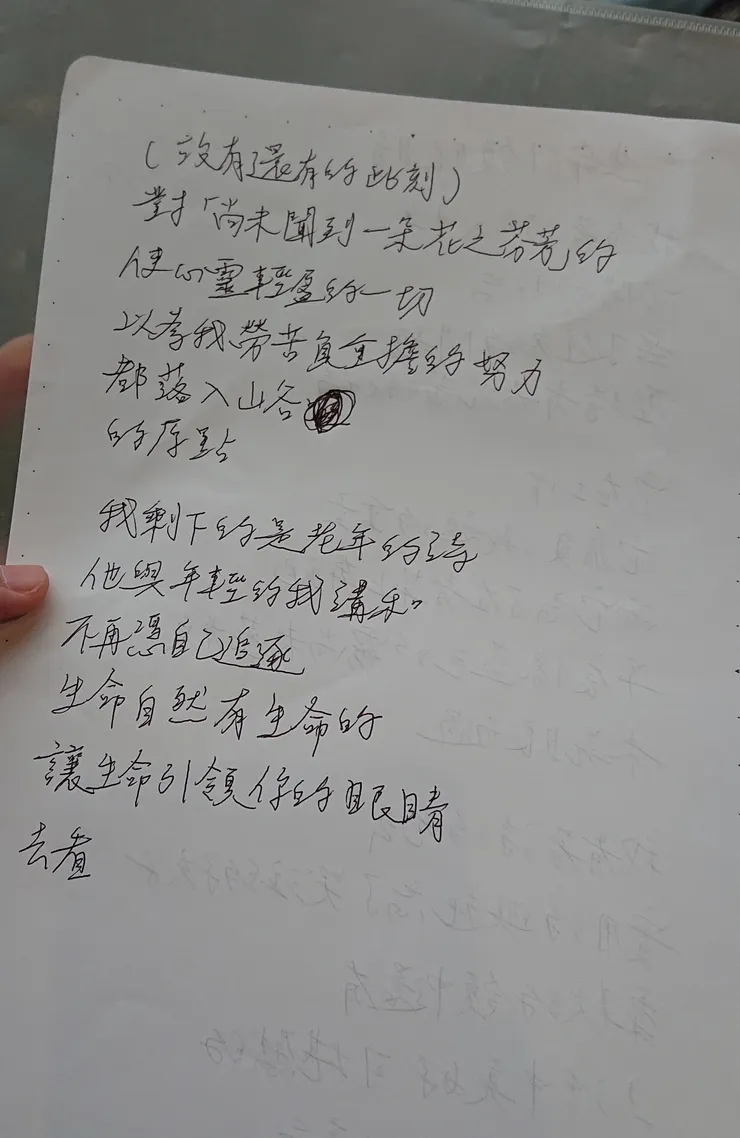 (沒有還有的此刻)
對「尚未聞到一朵花之芬芳」的
使心靈輕盈的一切
以為我勞苦負重擔的努力
都落入山谷
的原點
我剩下的是老年的詩
他與年輕的我講和
不再憑自己追逐
生命自然有生命的
讓生命引領你的眼睛
去看